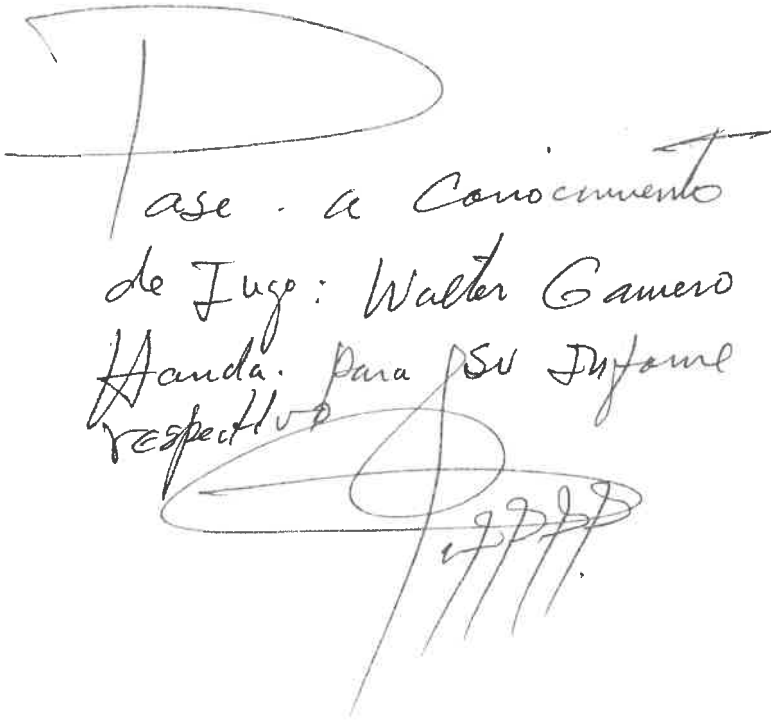 Pase. a Conocimiento
de Ingo: Walter Gamero
Handa. para su Informe
respectivo